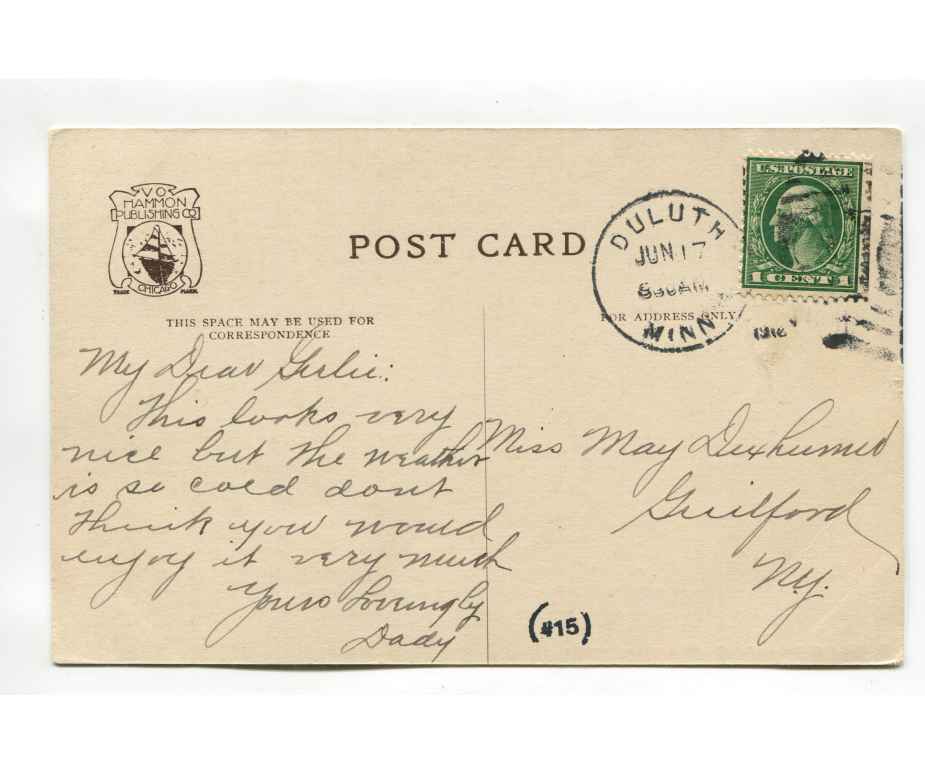 V.O.
HAMMON
PUBLISHING CO
CHICAGO
TRADE MARK
POST CARD
DULUTH
JUN 17
MINN
U.S. POSTAGE
1 CENT 1
THIS SPACE MAY BE USED FOR
CORRESPONDENCE
FOR ADDRESS ONLY
My Dear Girlie:
This looks very
nice but the weather
is so cold dont
think you would
enjoy it very much
Yours Lovingly
Dady
Miss May
Guilford
N.Y.
(415)